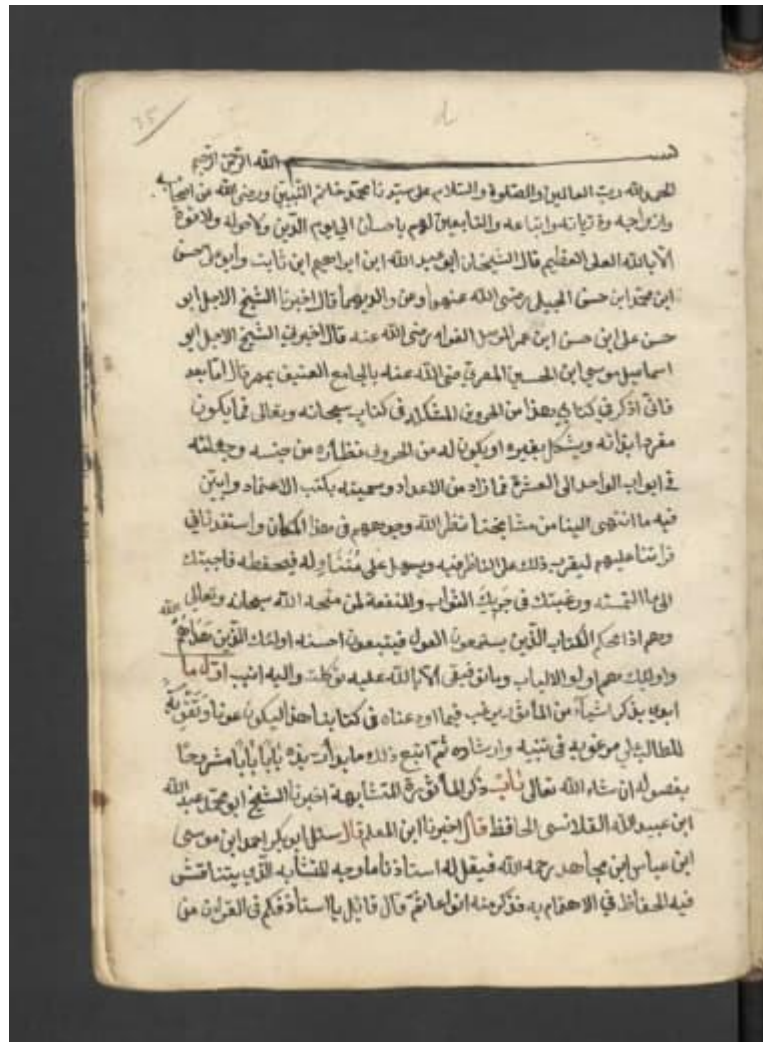 35
بسم الله الرحمن الرحيم
الحمد لله رب العالمين والصلوة والسلام على سيدنا محمد خاتم النبيين ورضى الله عن اصحابه
وازواجه وذرياته واتباعه والتابعين لهم باحسان الى يوم الدين ولا حول ولا قوة
الا بالله العلى العظيم قال الشيخان ابى عبد الله ابن ابراهيم ابن ثابت وابو حسن
ابن محمد ابن حسن الجبيلى رضى الله عنهما وعن والديهما قال اخبرنا الشيخ الاجل ابو
حسن على ابن حسن ابن عمر الموصل رضى الله عنه قال اخبرنى الشيخ الاجل ابو
اسماعيل موسى ابن الحسين المعرى رضى الله عنه بالجامع العتيق بمصر قال اما بعد
فانى اذكر فى كتابى هذا من الحروف المشكلة فى كتاب سبحانه وتعالى مما يكون
مفردا بذاته ويشكل بغيره او يكون له من الحروف نظائره من جنسه وجعلته
فى ابواب الواحد الى العشرة فما زاد من الاعداد وسميته بكتب الاعتماد وابين
فيه ما انتهى الينا من مشايخنا نظر الله وجوههم فى هذا المكان واستفدنا فى
قراتنا عليهم ليقرب ذلك على الناظر فيه ويسهل على متناوله فيحفظه فاجبتك
الى ما التمسته ورغبتك فى جزيل الثواب والمنفعة لمن منحه الله سبحانه وتعالى
وهم اذا محكم الكتاب الذين يستمعون القول فيتبعون احسنه اولئك الذين هداهم الله
واولئك هم اولو الالباب وما توفيقى الا بالله عليه توكلت واليه انيب اول ما
ابدى بذكر اشياء من المأثور يرغب فيما اودعناه فى كتابنا هذا ليكون عونا وتقوية
للطالب لى مرغوبه فى تنبه وارشاده ثم اتبع ذلك ما بدأت بذه بابا بابا مشروحا
بفصوله ان شاء الله تعالى باب ذكر المأثورة المتشابهة اخبرنا الشيخ ابو محمد عبد الله
ابن عبيد الله القلانسى الحافظ قال اخبرنا ابن المعلم قال سئل ابو بكر احمد ابن موسى
ابن عباس ابن مجاهد رحمه الله فيقل له استاذنا ما وجه المتشابه الذى يتناقش
فيه الحفاظ فى الاهتمام به فذكر منه انواعا ثم قال قائل يا استاذ فكم فى القرآن من